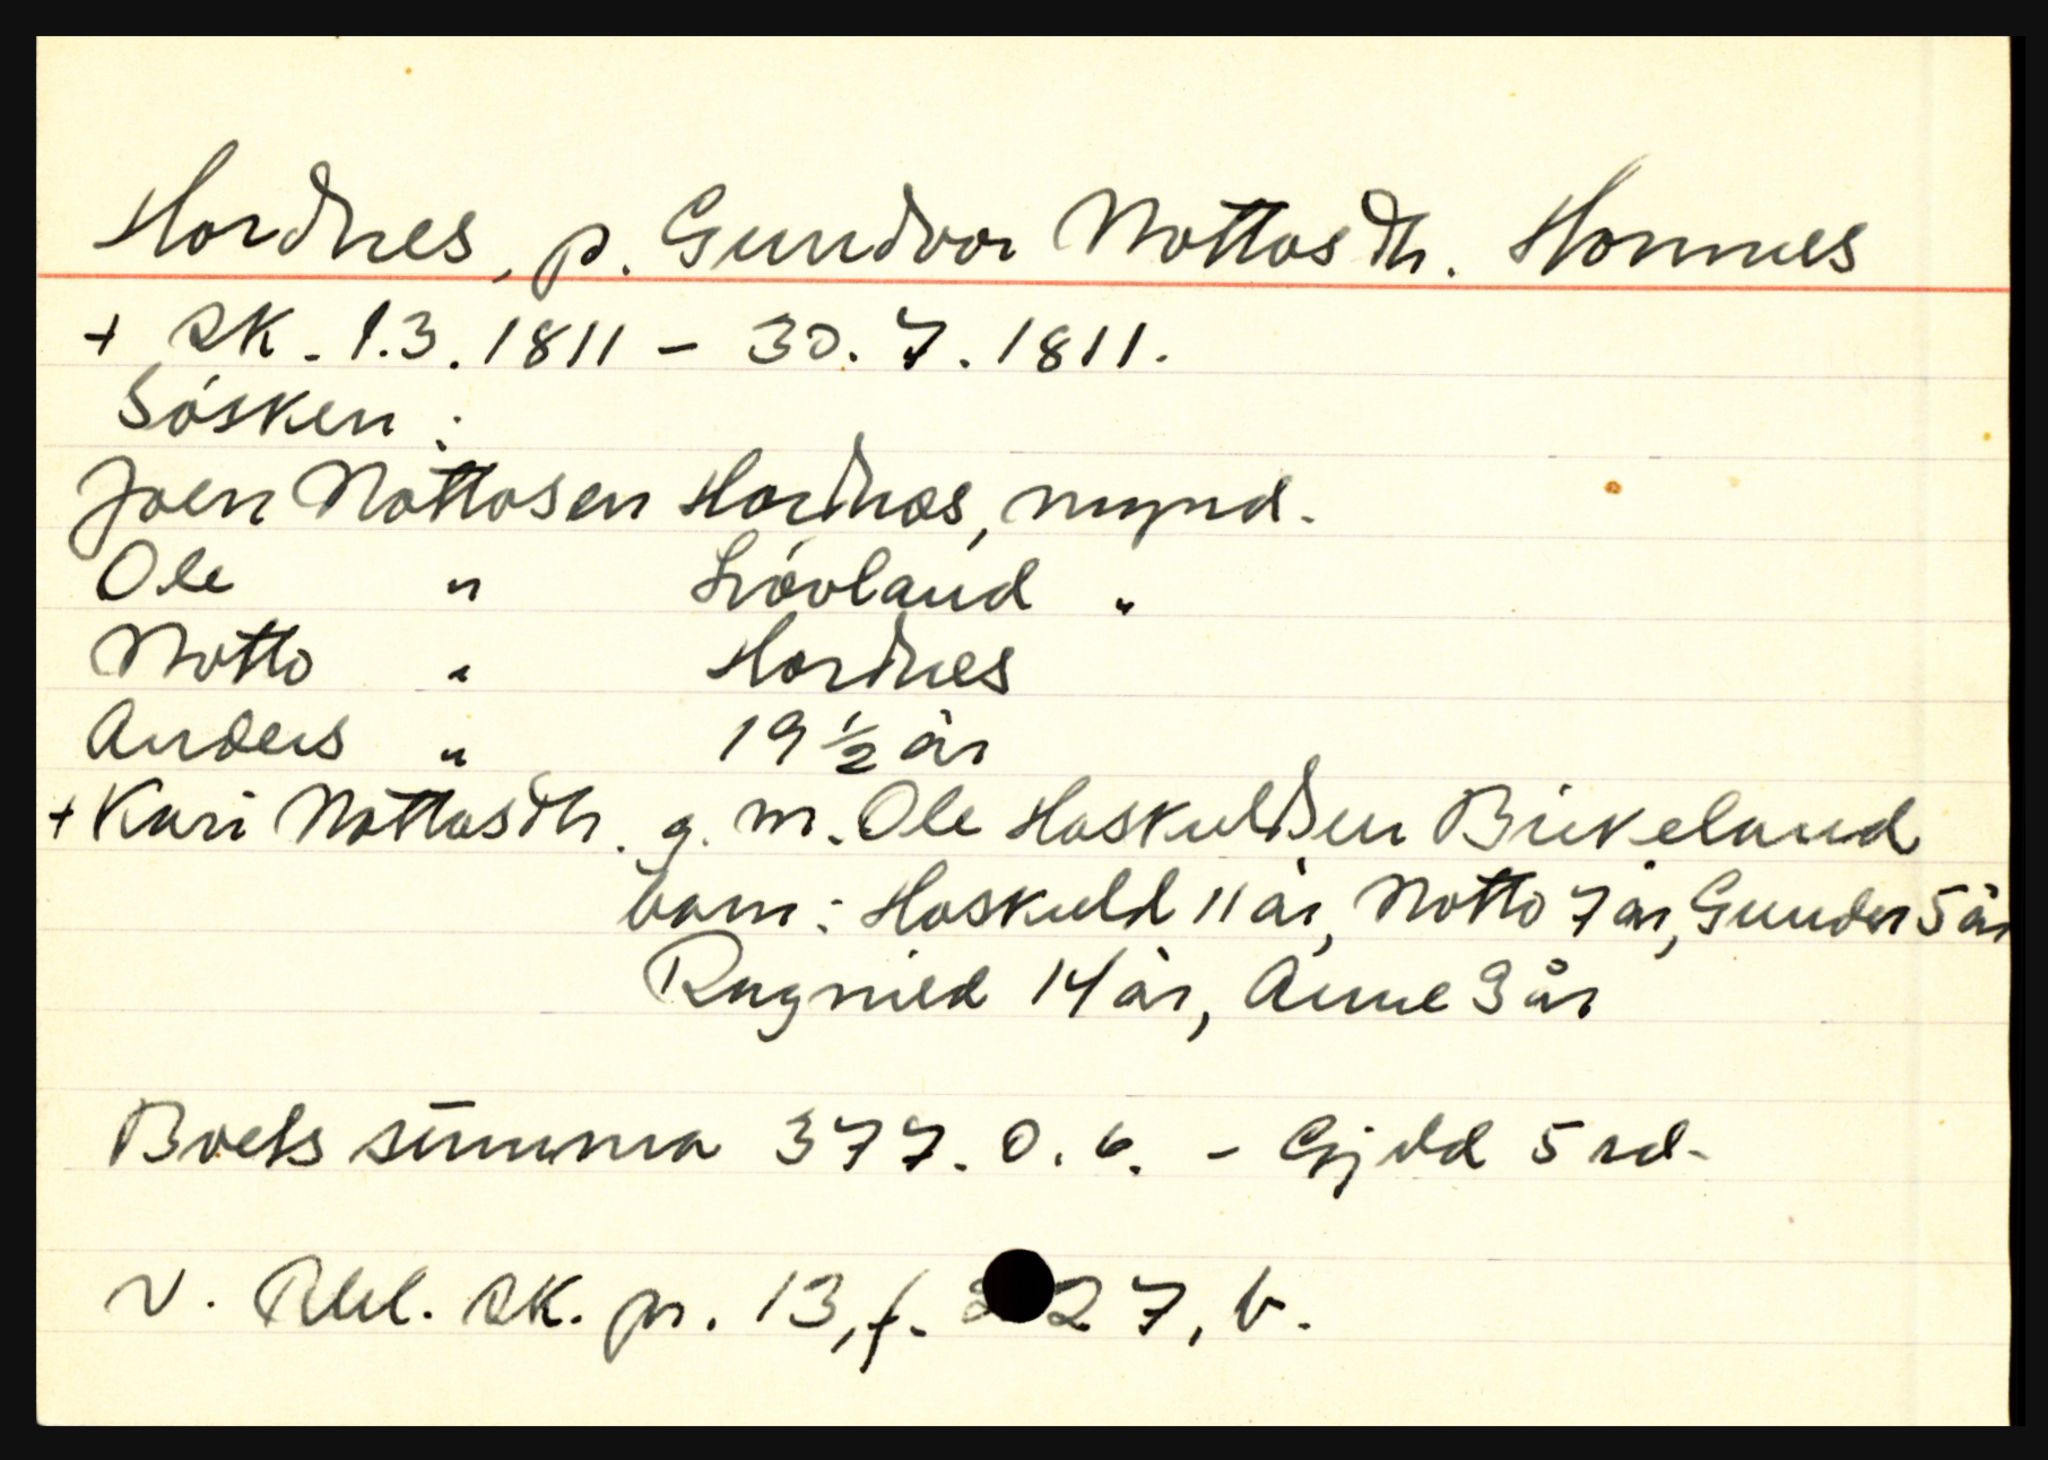 Hordnes, p. Gundvor Nottosdtr. Honnes
+ sk. 1.3.1811 - 30.7.1811.
Søsken:
Joen Nottosen Hordnes, mynd.
Ole " Løvland "
Notto " Hordnes
Anders " 19 ½ år
+ Kari Nottosdtr. g. m. Ole Hoskuldsen Birkeland
barn: Hoskuld 11 år, Notto 7 år, Gunder 5 år
Ragnild 14 år, Anne 3 år
Boets summa 377.0.6. - Gjeld 5 rd.
V. Rbl. sk. pr. 13, f. 27, b.